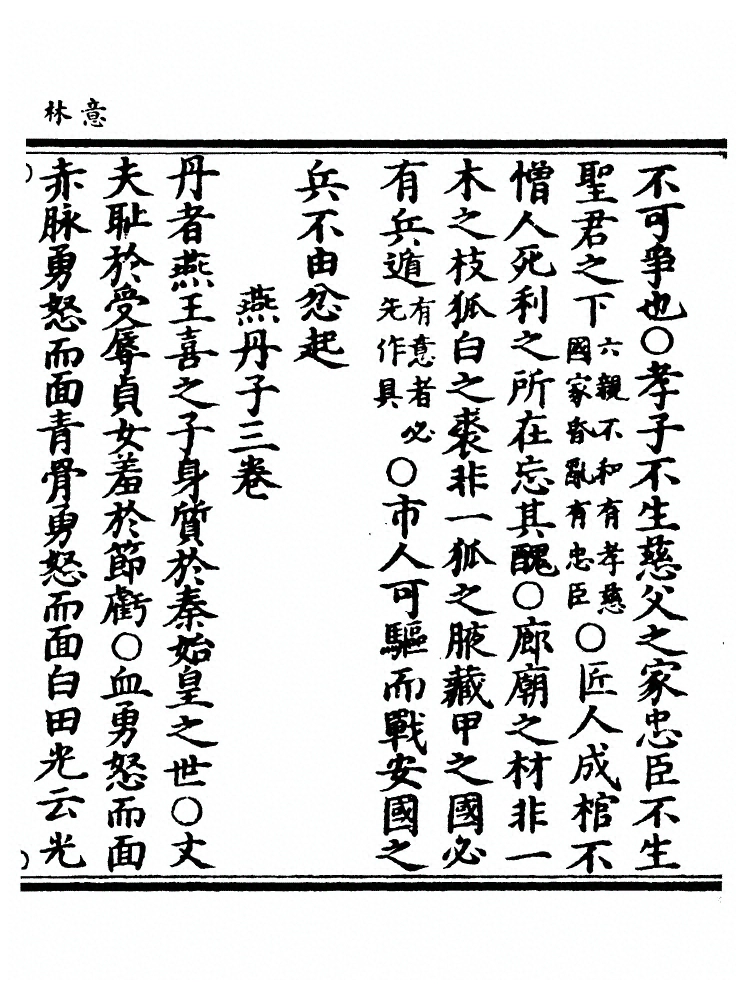 意林
不可爭也〇孝子不生慈父之家忠臣不生
聖君之下六親不和有孝慈國家昏亂有忠臣〇匠人成棺不
憎人死利之所在忘其醜〇廊廟之材非一
木之枝狐白之裘非一狐之腋藏甲之國必
有兵遁有意者必先作具〇市人可驅而戰安國之
兵不由忿起
燕丹子三卷
丹者燕王喜之子身質於秦始皇之世〇丈
夫耻於受辱貞女羞於節虧〇血勇怒而面
赤脉勇怒而面青骨勇怒而面白田光云光